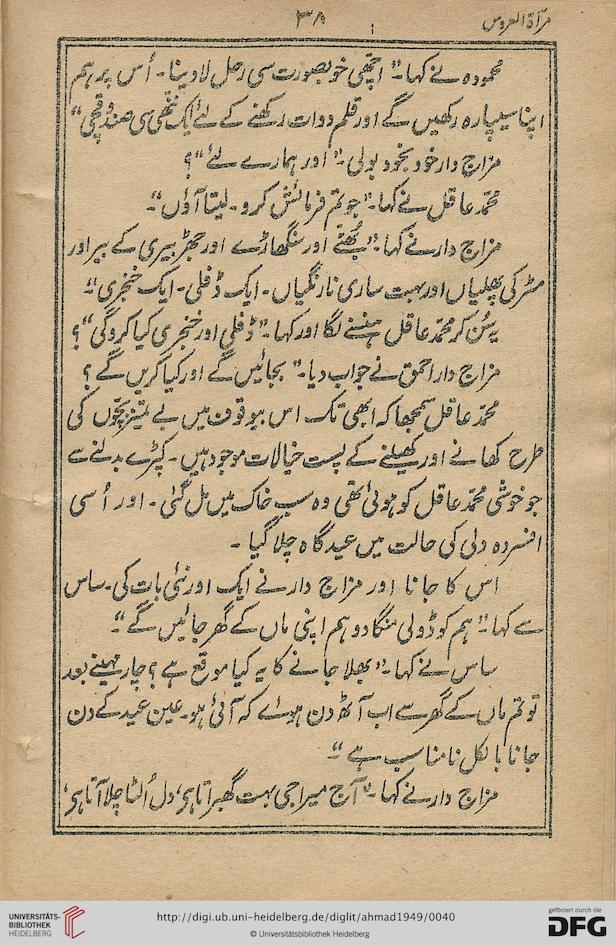 مرآۃ العروس
۳۸
محمودہ نے کہا۔" اچھی خوبصورت سی رحل لا دینا۔ اُس پر ہم
اپنا سیپارہ رکھیں گے اور قلم دوات رکھنے کے لئے ایک ننھی سی صندوقچی"
مزاج دار خود بخود بولی۔" اور ہمارے لئے"؟
محمّد عاقل نے کہا۔"جو تم فرمائش کرو۔ لیتا آؤں"۔
مزاج دار نے کہا۔"بھُٹے اور سنگھاڑے اور جھڑبیری کے بیر اور
مٹر کی پھلیاں اور بہت ساری نارنگیاں۔ ایک ڈفلی۔ ایک خنجری"۔
یہ سُن کر محمّد عاقل ہنسنے لگا اور کہا۔" ڈفلی اور خنجری کیا کروگی"؟
مزاج دار احمق نے جواب دیا۔" بجائیں گے اور کیا کریں گے ؟
محمّد عاقل سمجھا کہ ابھی تک اس بیوقوف میں بے تمیز بچّوں کی
طرح کھانے اور کھیلنے کے پست خیالات موجود ہیں۔ کپڑے بدلنے سے
جو خوشی محمّد عاقل کو ہوئی تھی وہ سب خاک میں مل گئی۔ اور اُسی
افسردہ دلی کی حالت میں عیدگاہ چلا گیا۔
اس کا جانا اور مزاج دار نے ایک اور نئی بات کی۔ ساس
سے کہا۔" ہم کو ڈولی منگا دو ہم اپنی ماں کے گھر جائیں گے"۔
ساس نے کہا۔" بھلا جانے کا یہ کیا موقع ہے ؟ چار مہینے بعد
تو تم ماں کے گھر سے اب آٹھ دن ہوئے کہ آئی ہو۔ عین عید کے دن
جانا بالکل نامناسب ہے"۔
مزاج دار نے کہا۔" آج میرا جی بہت گھبراتا ہی، دل اُلٹا چلا آتا ہی،
UNIVERSITÄTS-
BIBLIOTHEK
HEIDELBERG
http://digi.ub.uni-heidelberg.de/diglit/ahmad1949/0040
© Universitätsbibliothek Heidelberg
gefördert durch die
DFG